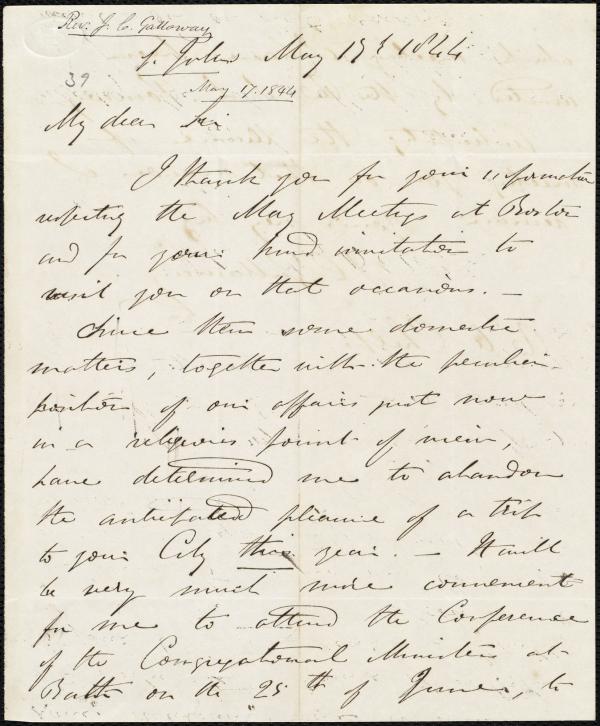 Rev. J. C. Galloway
St. John May 17th 1844
39
May 17. 1844
My dear Sir
I thank you for your information
respecting the May Meetings at Boston
and for your kind invitation to
visit you on that occasion. —
Since then some domestic
matters, together with the peculiar
position of our affairs just now
in a religious point of view,
have determined me to abandon
the anticipated pleasure of a trip
to your City this year. — It will
be very much more convenient
for me to attend the Conference
of the Congregational Ministers at
Bath on the 25th of June, to